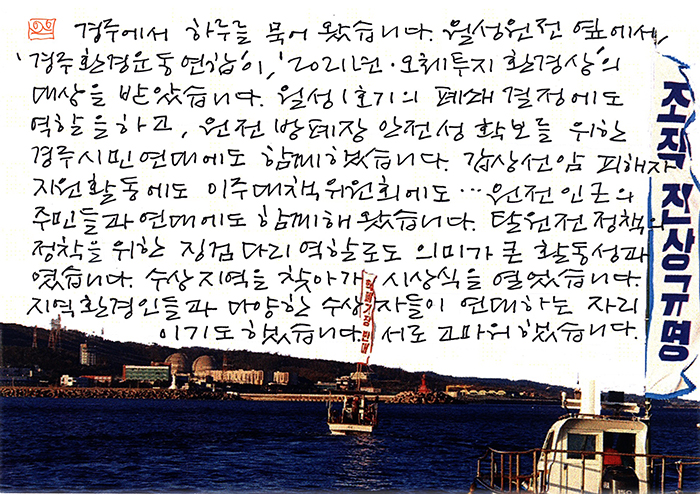 경주에서 하루를 묵어 왔습니다. 월성원전 옆에서,
'경주환경운동연합'이, '2021년·오체투지 환경상'의
대상을 받았습니다. 월성1호기의 폐쇄 결정에도
역할을 하고, 원전 방폐장 안전성 확보를 위한
경주시민연대에도 함께했습니다. 갑상선암 피해자
지원활동에도 이주대책위원회에도… 원전 인근의
주민들과 연대에도 함께해 왔습니다. 탈원전 정책의
정착을 위한 징검다리 역할로도 의미가 큰 활동성과
였습니다. 수상지역을 찾아가 시상식을 열었습니다.
지역환경인들과 다양한 수상자들이 연대하는 자리
이기도 했습니다. 서로 고마워했습니다.
조작 진상규명
핵폐기장 반대